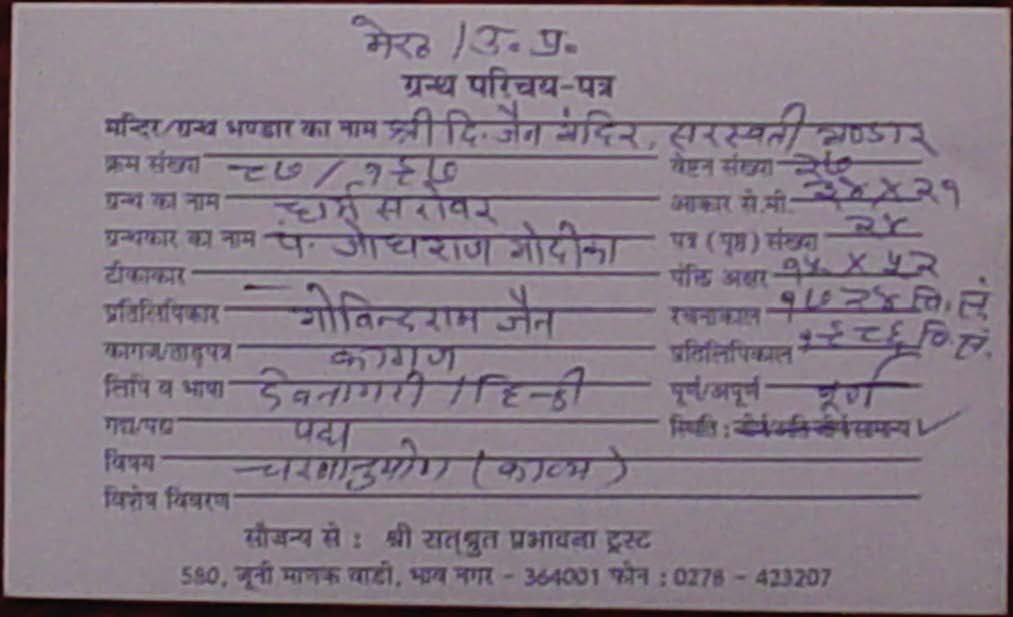 मेरठ / उ. प्र.
ग्रन्थ परिचय-पत्र
मन्दिर/ग्रन्थ भण्डार का नाम श्री दि. जैन मंदिर, सरस्वती भण्डार
क्रम संख्या ८७ / १६७ वेष्टन संख्या २७
ग्रन्थ का नाम धर्म सरोवर आकार से.मी. ३४ X २१
ग्रन्थकार का नाम पं. जोधराज गोदीका पत्र (पृष्ठ) संख्या २४
टीकाकार — पंक्ति अक्षर १५ X ५२
प्रतिलिपिकार गोविन्दराम जैन रचनाकाल १७२४ वि. सं.
कागज/ताड़पत्र कागज प्रतिलिपिकाल १९८६ वि. सं.
लिपि व भाषा देवनागरी / हिन्दी पूर्ण/अपूर्ण पूर्ण
गद्य/पद्य पद्य स्थिति : जीर्ण/अति जीर्ण/सामान्य ✓
विषय चरणानुयोग (काव्य)
विशेष विवरण
सौजन्य से : श्री सत्श्रुत प्रभावना ट्रस्ट
580, जूनी माणक वाडी, भाव नगर - 364001 फोन : 0278 - 423207